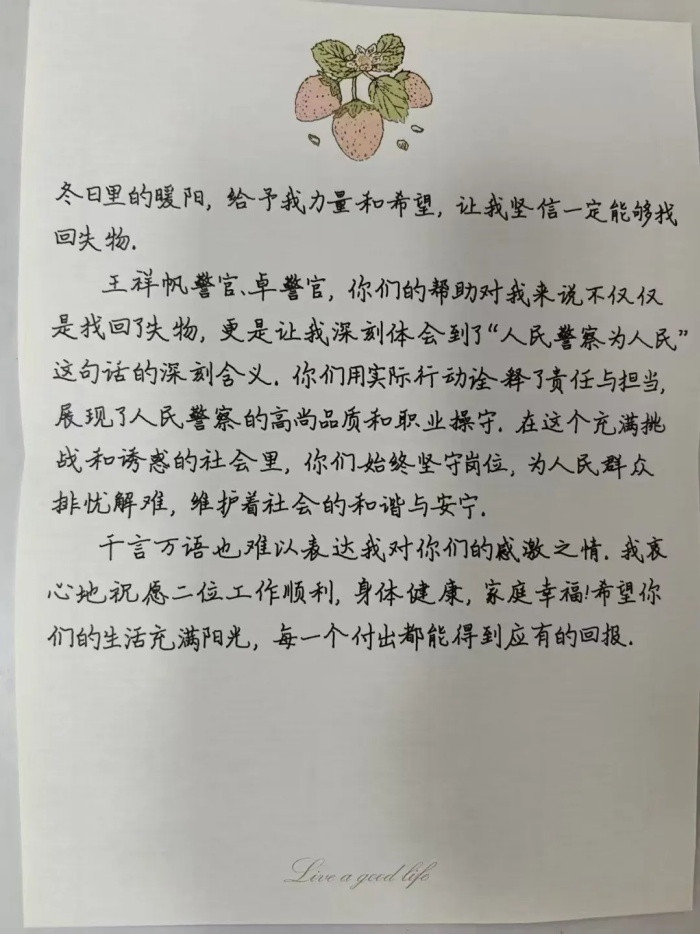 冬日里的暖阳，给予我力量和希望，让我坚信一定能够找
回失物.
王祥帆警官、卓警官，你们的帮助对我来说不仅仅
是找回了失物，更是让我深刻体会到了“人民警察为人民”
这句话的深刻含义. 你们用实际行动诠释了责任与担当，
展现了人民警察的高尚品质和职业操守. 在这个充满挑
战和诱惑的社会里，你们始终坚守岗位，为人民群众
排忧解难，维护着社会的和谐与安宁.
千言万语也难以表达我对你们的感激之情. 我衷
心地祝愿二位工作顺利，身体健康，家庭幸福！希望你
们的生活充满阳光，每一个付出都能得到应有的回报.
Live a good life